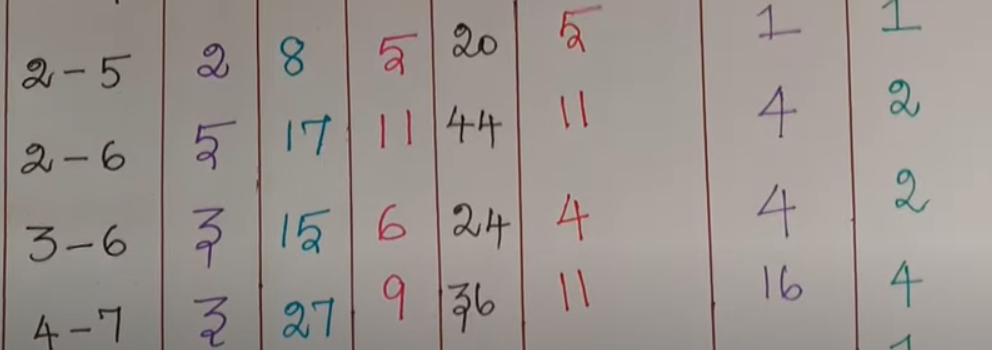 2-5 2 8 5 20 5 1 1
2-6 5 17 11 44 11 4 2
3-6 3 15 6 24 4 4 2
4-7 3 27 9 36 11 16 4